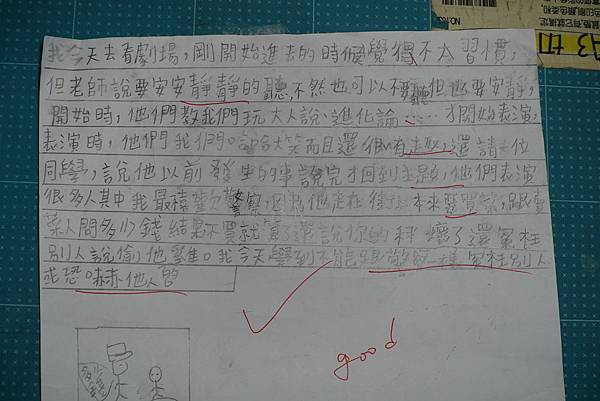 我今天去看劇場,剛開始進去的時候覺得不太習慣,
但老師說要安安靜靜的聽,不然也可以不要聽但也要安靜,
開始時,他們教我們玩大人說、進化論……才開始表演,
表演時,他們我們哈哈大笑而且還很有,還請一位
同學,說他以前發生的事說完才回到,他們表演
很多人其中我最喜歡警察,因為他走在街上本來要買菜,跟賣
菜人問多少錢結果不買就算了還說你的秤壞了還冤枉
別人說偷他東西。我今天學到不能跟警察一樣冤枉別人
或恐嚇他人的
good
多少錢